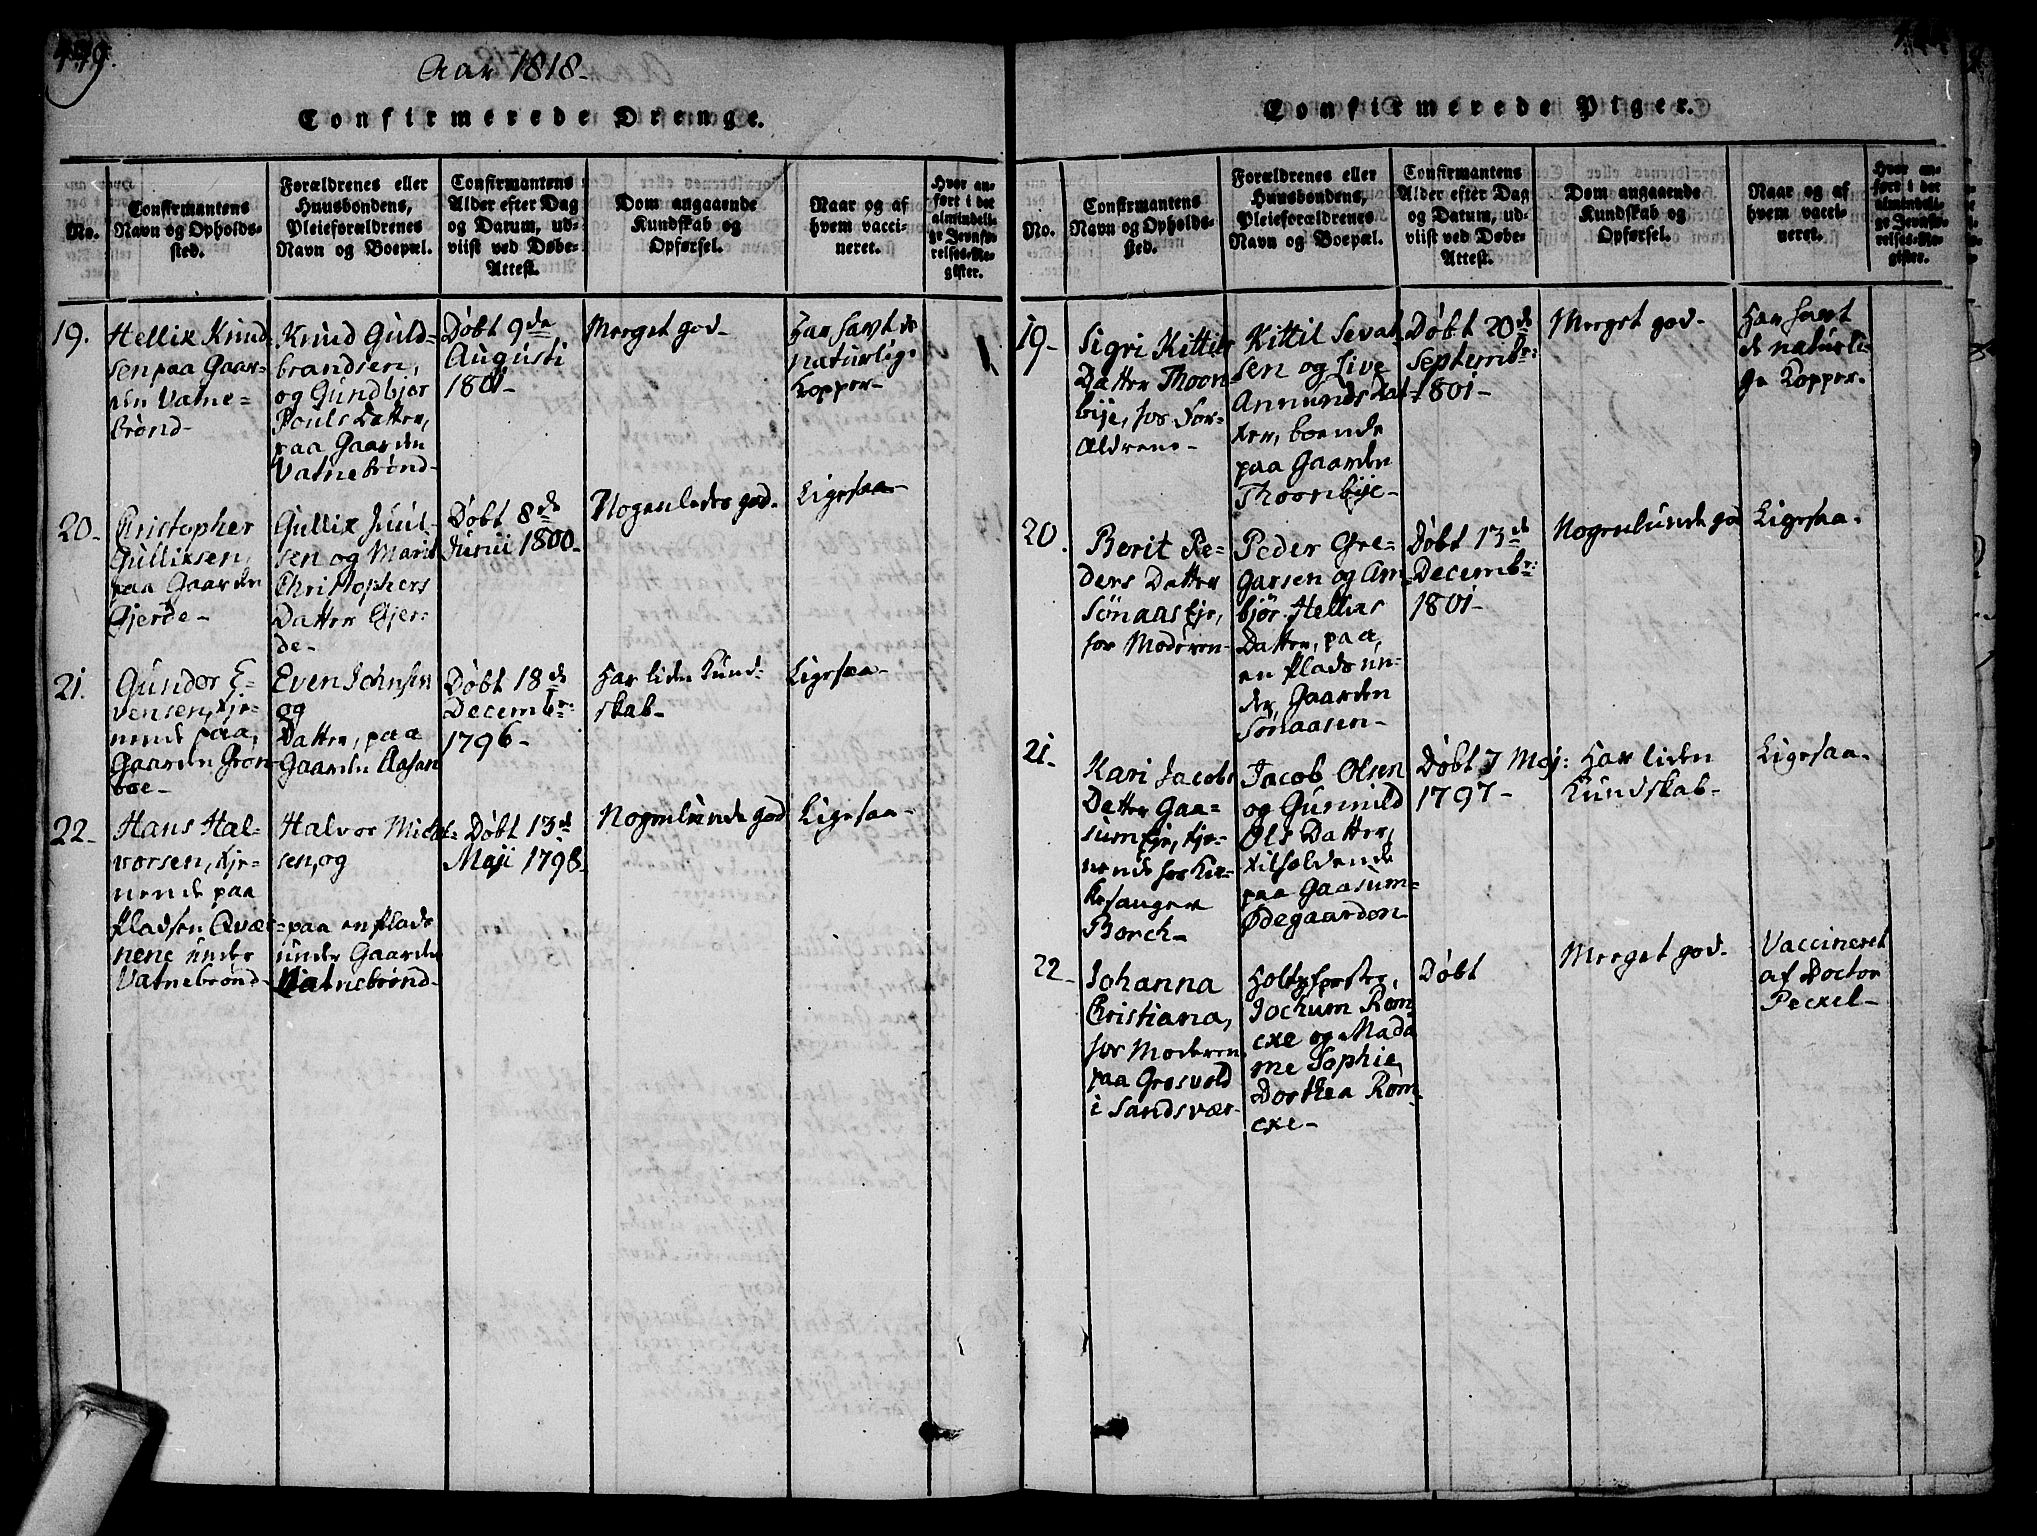 449.
Aar 1818.
Confirmerede Drenge.
No.
Confirmantens
Navn og Opholds-
sted.
Forældrenes eller
Huusbondens,
Pleieforældrenes
Navn og Boepæl.
Confirmantens
Alder efter Dag
og Datum, ud-
viist ved Døbe-
Attest.
Dom angaaende
Kundskab og
Opførsel.
Naar og af
hvem vacci-
neret.
Hvor an-
ført i det
almindeli-
ge Jevnfø-
relses-Re-
gister.
19.
Hellik Knud-
sen paa Gaar-
den Vatne-
brønd-
Knud Guld-
brandsen,
og Gundbjør
Pouls Datter,
paa Gaarden
Vatnebrønd-
Døbt 9de
Augusti
1801-
Meeget god-
Har havt de
naturlige
Kopper-
20-
Christopher
Gulliksen,
paa Gaarden
Gjerde-
Gullik Juul-
sen og Marit
Christophers
Datter Gjer-
de-
Døbt 8de
Junii 1800-
Nogenledes god-
Ligesaa-
21.
Gunder E-
vensen, tje-
nende paa,
Gaarden Grøn-
boe-
Even Johnsen
og
Datter, paa
Gaarden Aasen
Døbt 18de
Decembr:
1796-
Har liden Kund-
skab-
Ligesaa-
22-
Hans Hal-
vorsen, tje-
nende paa
Pladsen Qvær-
nene under
Vatnebrønd-
Halvor Michel-
sen, og
paa en Plads
under Gaarden
Vatnebrønd-
Døbt 13de
Maji 1798
Nogenlunde god
Ligesaa-
Confirmerede Piger.
No.
Confirmantens
Navn og Opholds-
sted.
Forældrenes eller
Huusbondens,
Pleieforældrenes
Navn og Boepæl.
Confirmantens
Alder efter Dag
og Datum, ud-
viist ved Døbe-
Attest.
Dom angaaende
Kundskab og
Opførsel.
Naar og af
hvem vacci-
neret.
Hvor an-
ført i det
almindeli-
ge Jevnfø-
relses-Re-
gister.
19-
Sigri Kittils
Datter Thoon-
bye, hos For-
ældrene-
Kittil Sevat-
sen og Live
Annunds Dat-
ter, boende
paa Gaarden
Thoonbije-
Døbt 20de
Septembr:
1801-
Meeget god-
Har havt
de naturli-
ge Kopper.
20.
Berit Pe-
ders Datter
Sønaas Eje,
hos Moderen-
Peder Gre-
garsen og Am-
bjør Hellias
Datter, paa,
en Plads un-
der, Gaarden
Sønaasen-
Døbt 13de
Decembr:
1801-
Nogenlunde god
Ligesaa-
21-
Kari Jacobs
Datter Gaa-
sum Eje, tje-
nende hos Kir-
kesanger
Borch-
Jacob Olsen
og Gunnild
Ols Datter,
tilholdende
paa Gaasum-
Ødegaarden
Døbt 7 Maj:
1797-
Har liden
Kundskab-
Ligesaa-
22-
Johanna
Christiana,
hos Moderen
paa Gresvold
i Sandsvær-
Holtzførster,
Jochum Rom-
cke og Mada-
me Sophie
Dorthea Rom-
cke-
Døbt
Meeget god-
Vaccineret
af Doctor
Peckel-